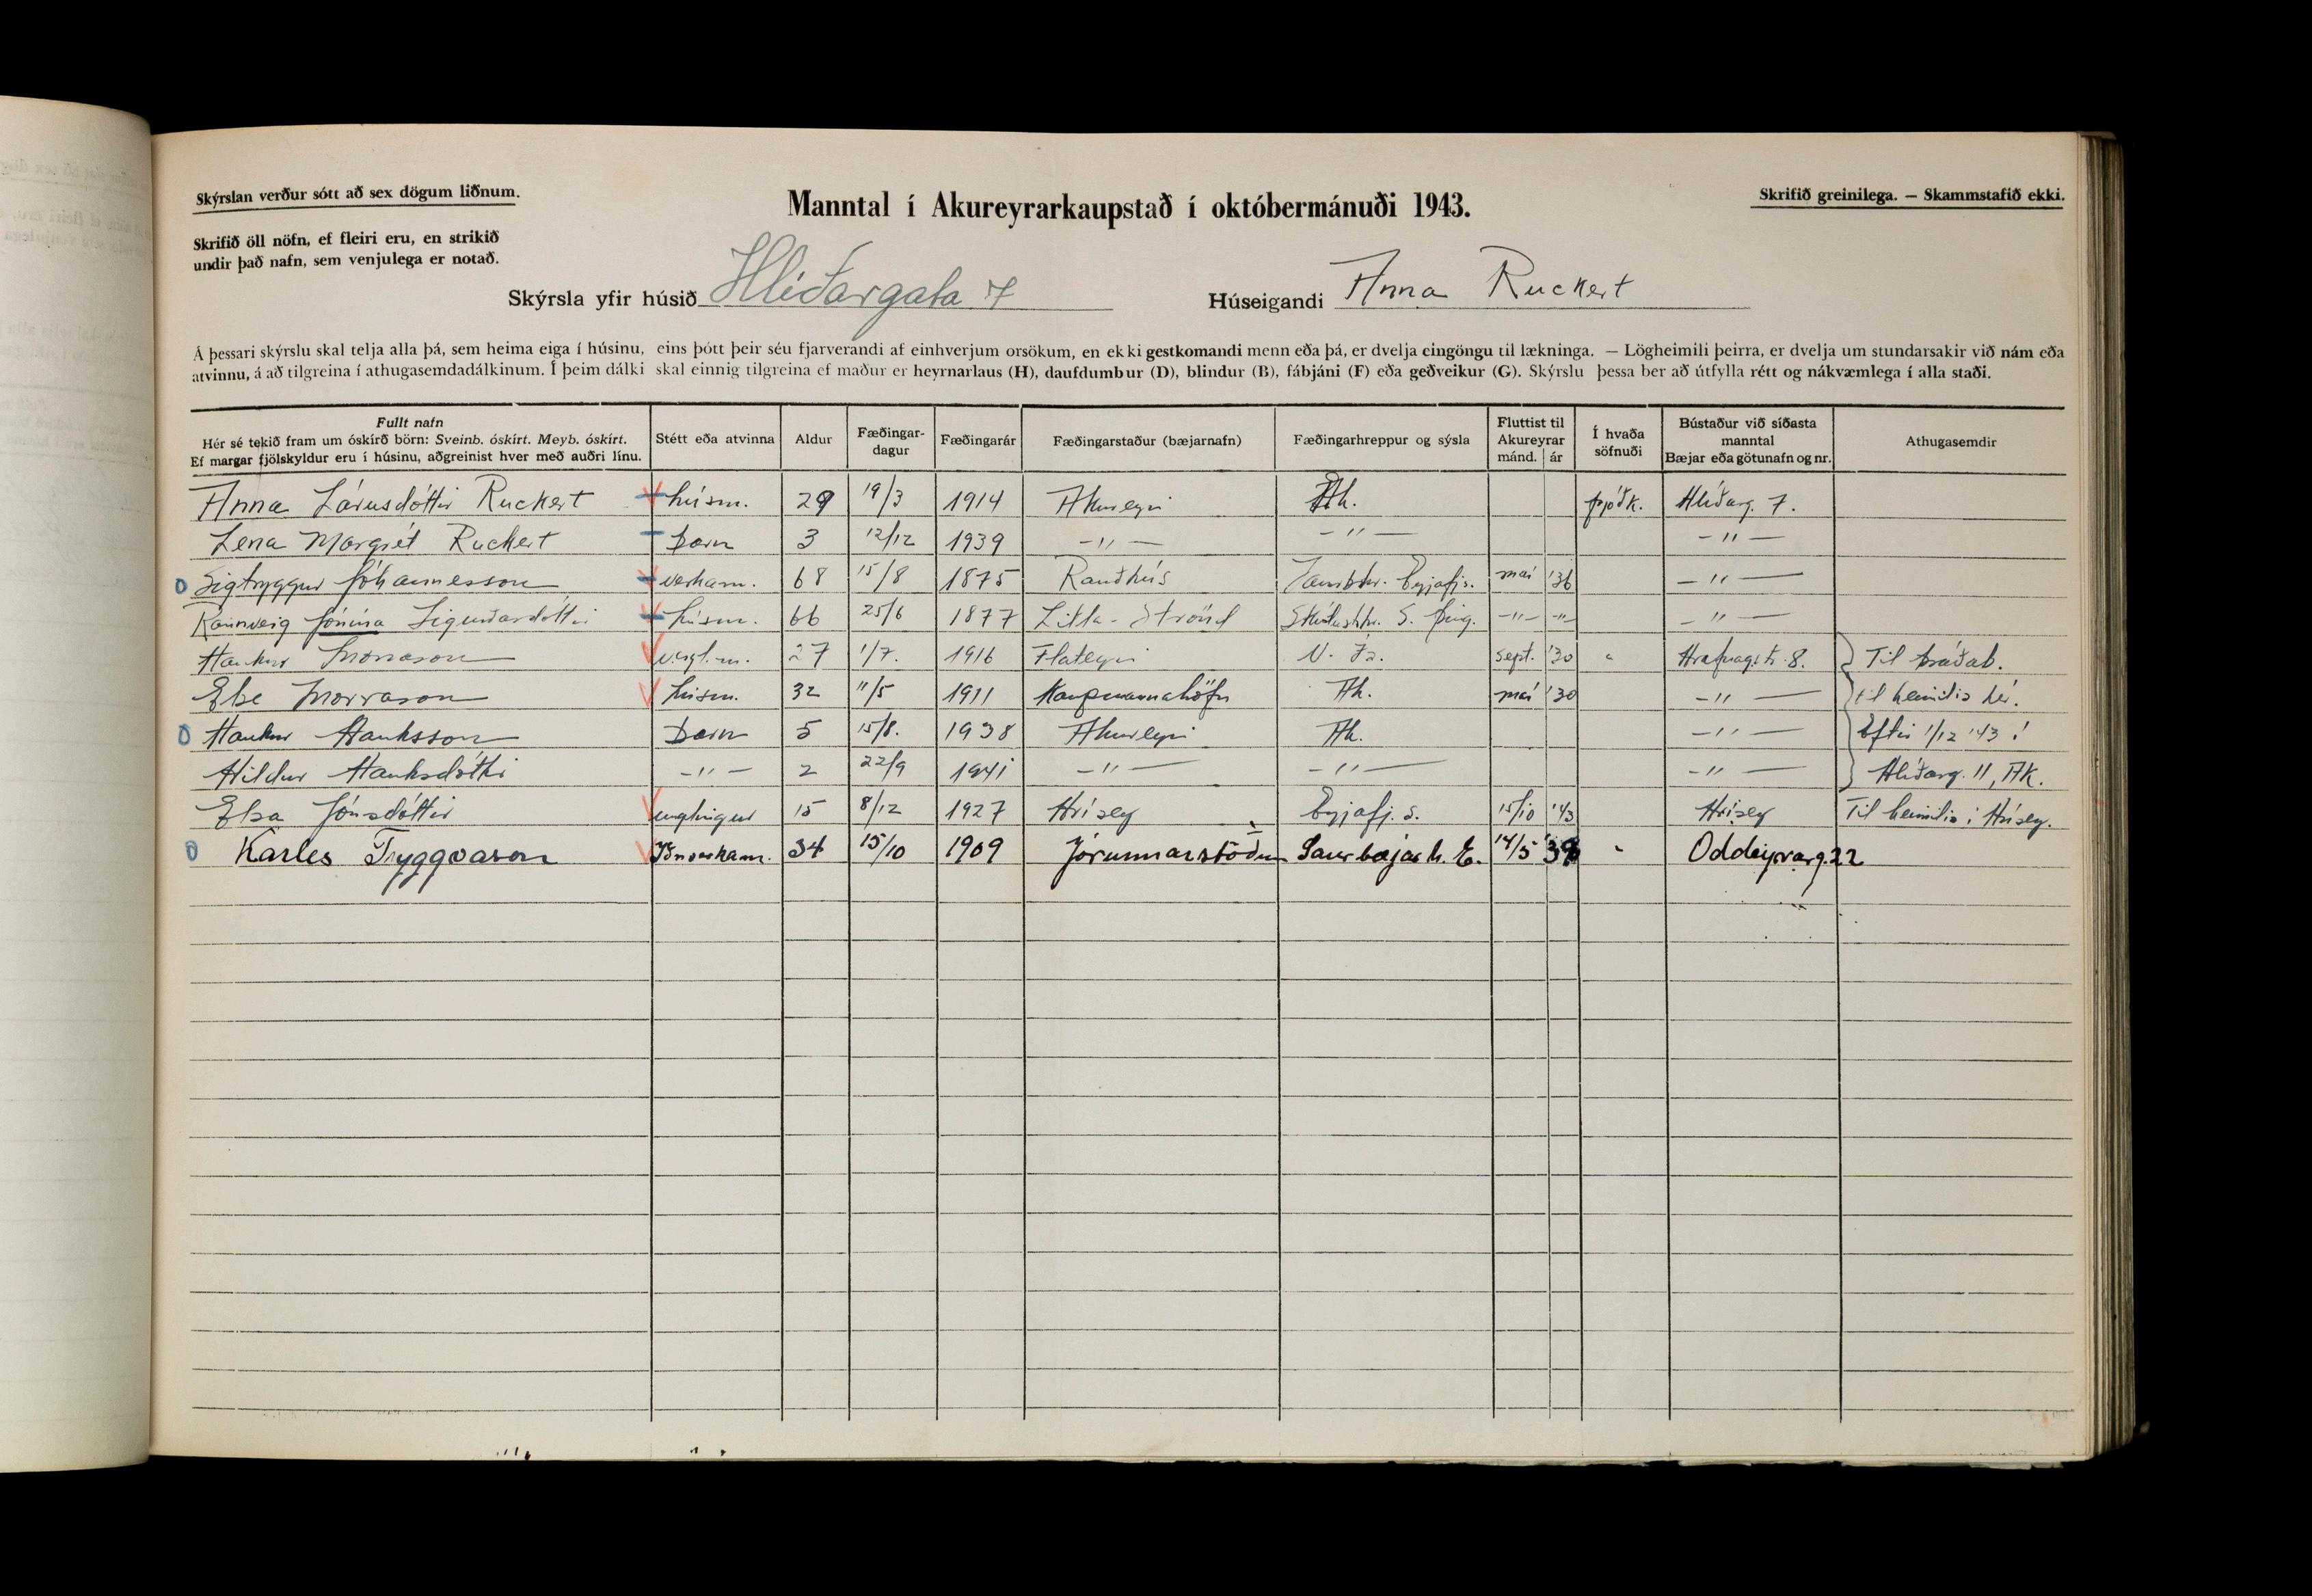 Skýrslan verður sótt að sex dögum liðnum.
Manntal í Akureyrarkaupstað í októbermánuði 1943.
Skrifið greinilega. — Skammstafið ekki.
Skrifið öll nöfn, ef fleiri eru, en strikið
undir það nafn, sem venjulega er notað.
Skýrsla yfir húsið Hlíðargata 7 Húseigandi Anna Ruckert
Á þessari skýrslu skal telja alla þá, sem heima eiga í húsinu, eins þótt þeir séu fjarverandi af einhverjum orsökum, en ekki gestkomandi menn eða þá, er dvelja eingöngu til lækninga. — Lögheimili þeirra, er dvelja um stundarsakir við nám eða
atvinnu, á að tilgreina í athugasemdadálkinum. Í þeim dálki skal einnig tilgreina ef maður er heyrnarlaus (H), daufdumbur (D), blindur (B), fábjáni (F) eða geðveikur (G). Skýrslu þessa ber að útfylla rétt og nákvæmlega í alla staði.
Fullt nafn
Hér sé tekið fram um óskírð börn: Sveinb. óskírt. Meyb. óskírt.
Ef margar fjölskyldur eru í húsinu, aðgreinist hver með auðri línu.
Stétt eða atvinna
Aldur
Fæðingar-
dagur
Fæðingarár
Fæðingarstaður (bæjarnafn)
Fæðingarhreppur og sýsla
Fluttist til
Akureyrar
mánd. ár
Í hvaða
söfnuði
Bústaður við síðasta
manntal
Bæjar eða götunafn og nr.
Athugasemdir
Anna Lárusdóttir Ruckert húsm. 29 19/3 1914 Akureyri Ak. þjóðk. Hlíðarg. 7.
Lena Margrét Ruckert Barn 3 12/12 1939 -"- -"- -"-
Sigtryggur Jóhannesson verkam. 68 15/8 1875 Rauðhús Eyjafjs. maí '36 -"-
Rannveig Jónína Sigurðardóttir húsm. 66 25/6 1877 Litla-Strönd Skútusthr. S. Þing. -"- -"- -"-
Haukur Snorrason 27 1/7. 1916 Flateyri V. Ís. sept. '30 " Hrafnag.str. 8. Til bráðab.
Else Snorrason húsm. 32 11/5 1911 Kaupmannahöfn Ak. maí '30 -"- til heimilis hér.
Haukur Hauksson Barn 5 15/8. 1938 Akureyri Ak. -"- Eftir 1/12 '43 :
Hildur Hauksdóttir -"- 2 22/9 1941 -"- -"- -"- Hlíðarg. 11, Ak.
Elsa Jónsdóttir unglingur 15 8/12 1927 Hrísey Eyjafj. s. 15/10 '43 Hrísey Til heimilis í Hrísey.
Karles Tryggvason Iðnverkam. 34 15/10 1909 Jórunnarstöðum Saurbæjarh. E. 14/5 " Oddeyrarg. 22